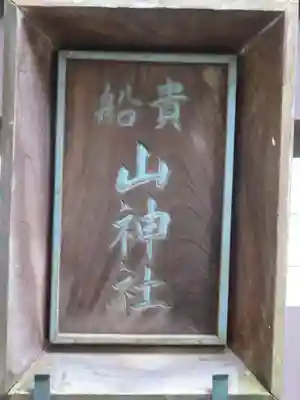 貴船
山神社